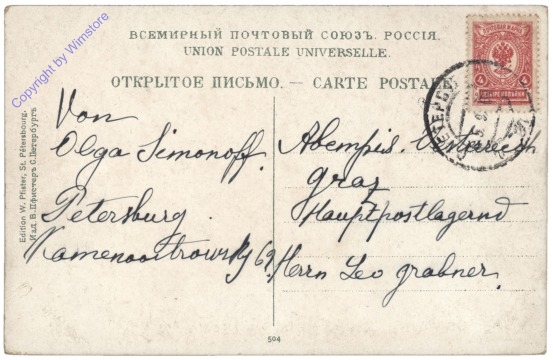 Copyright by Wimstore
ВСЕМИРНЫЙ ПОЧТОВЫЙ СОЮЗЪ. РОССІЯ.
UNION POSTALE UNIVERSELLE.
ОТКРЫТОЕ ПИСЬМО. — CARTE POSTALE
4 4
Edition W. Pfister, St. Pétersbourg.
Изд. В. Пфистеръ С. Петербургъ
Von
Olga Simonoff.
Petersburg.
Kamenoostrowsky 69.
Österreich
Graz
Hauptpostlagernd
Herrn Leo Grabner.
504